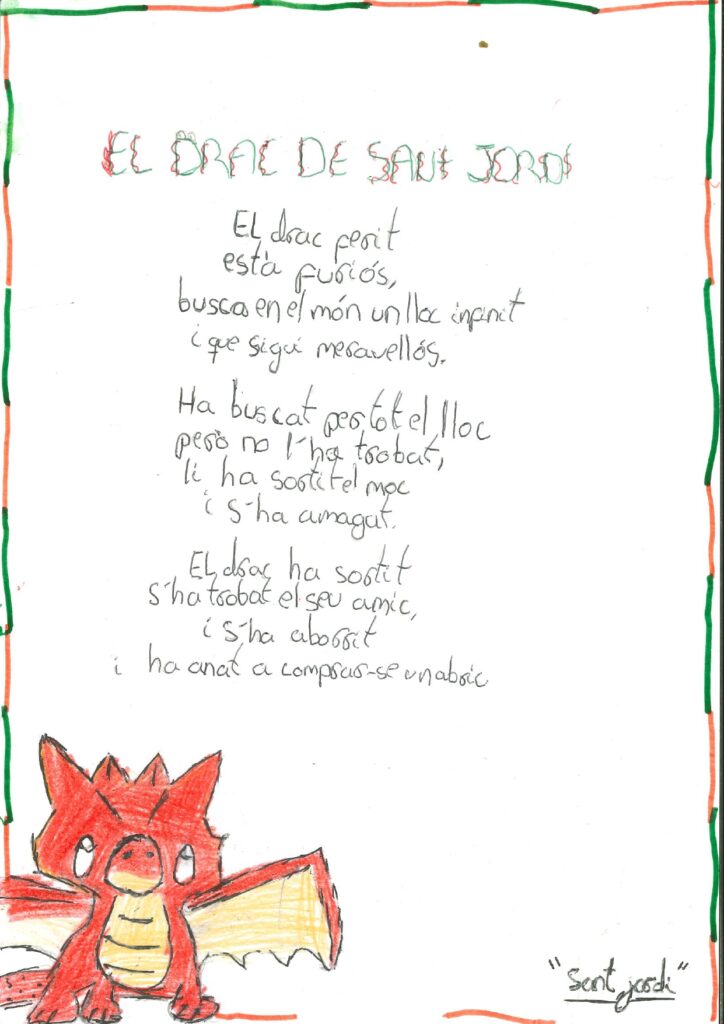 EL DRAC DE SANT JORDI
EL drac ferit
està furiós,
busca en el món un lloc infinit
i que sigui meravellós.
Ha buscat per tot el lloc
però no l'ha trobat,
li ha sortit el moc
i s'ha amagat.
EL drac ha sortit
s'ha trobat el seu amic,
i s'ha aborrit
i ha anat a comprar-se un abric
"Sant jordi"